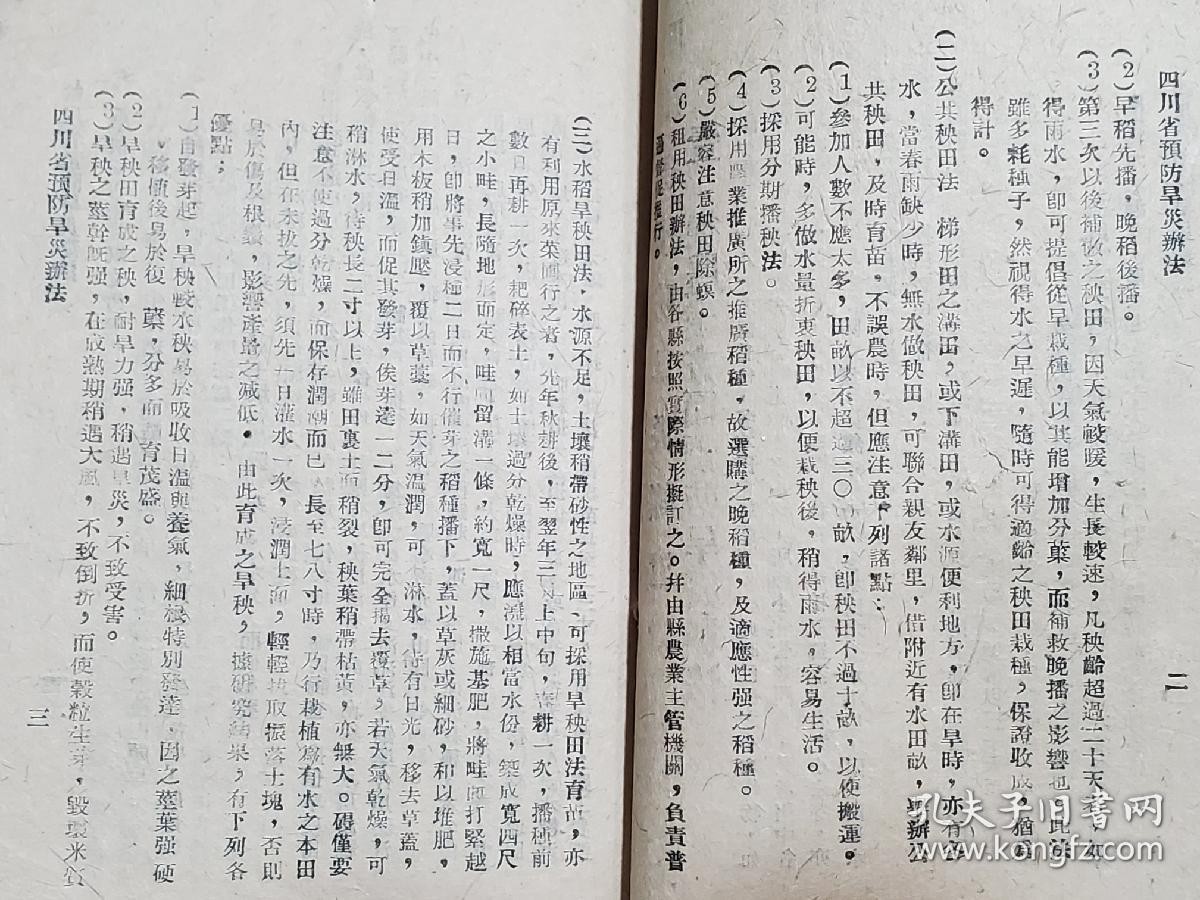 四川省預防旱災辦法
二
(2)早稻先播,晚稻後播。
(3)第三次以後補做之秧田,因天氣較暖,生長較速,凡秧齡超過二十天者,如
得雨水,即可提倡從早栽種,以其能增加分蘖,而補救晚播之影響也,此法
雖多耗種子,然視得水之早遲,隨時可得適齡之秧田栽種,保證收成,猶為
得計。
(二)公共秧田法 梯形田之溝田,或下溝田,或水源便利地方,即在旱時,亦有餘
水,當春雨缺少時,無水做秧田,可聯合親友鄰里,借附近有水田畝,舉辦公
共秧田,及時育苗,不誤農時,但應注意下列諸點:
(1)參加人數不應太多,田畝以不超過三〇〇畝,即秧田不過十畝,以便搬運。
(2)可能時,多做水量折衷秧田,以便栽秧後,稍得雨水,容易生活。
(3)採用分期播秧法。
(4)採用農業推廣所之推廣稻種,故選購之晚稻種,及適應性强之稻種。
(5)嚴密注意秧田除螟。
(6)租用秧田辦法,由各縣按照實際情形擬訂之。幷由縣農業主管機關,負責普
遍督促推行。
(三)水稻旱秧田法,水源不足,土壤稍帶砂性之地區、可採用旱秧田法育苗,亦
有利用原來菜園行之者,先年秋耕後,至翌年三月上中旬,春耕一次,播種前
數日再耕一次,耙碎表土,如土壤過分乾燥時,應澆以相當水份,築成寬四尺
之小畦,長隨地形而定,畦間留溝一條,約寬一尺,撒施基肥,將畦面打緊越
日,即將事先浸種二日而不行催芽之稻種播下,蓋以草灰或細砂,和以堆肥,
用木板稍加鎮壓,覆以草藁,如天氣溫潤,可不淋水,待有日光,移去草蓋,
使受日溫,而促其發芽,俟芽達一二分,即可完全揭去覆草,若天氣乾燥,可
稍淋水,待秧長二寸以上,雖田裏土面稍裂,秧葉稍帶枯黃,亦無大。碍僅要
注意不使過分乾燥,而保存潤潮而已 長至七八寸時,乃行栽植爲有水之本田
內,但在未拔之先,須先一日灌水一次,浸潤土面,輕輕拔取振落土塊,否則
易於傷及根鬚,影響產量之減低。由此育成之旱秧,據研究結果,有下列各
優點;
(1)自發芽起,旱秧較水秧易於吸收日溫與養氣,細根特別發達,因之莖葉强硬
,移植後易於復 蘖,分多而 育茂盛。
(2)旱秧田育成之秧,耐旱力强,稍遇旱災,不致受害。
(3)旱秧之莖幹既强,在成熟期稍遇大風,不致倒折,而使穀粒生芽,毀壞米質
四川省預防旱災辦法
三
孔夫子旧书网